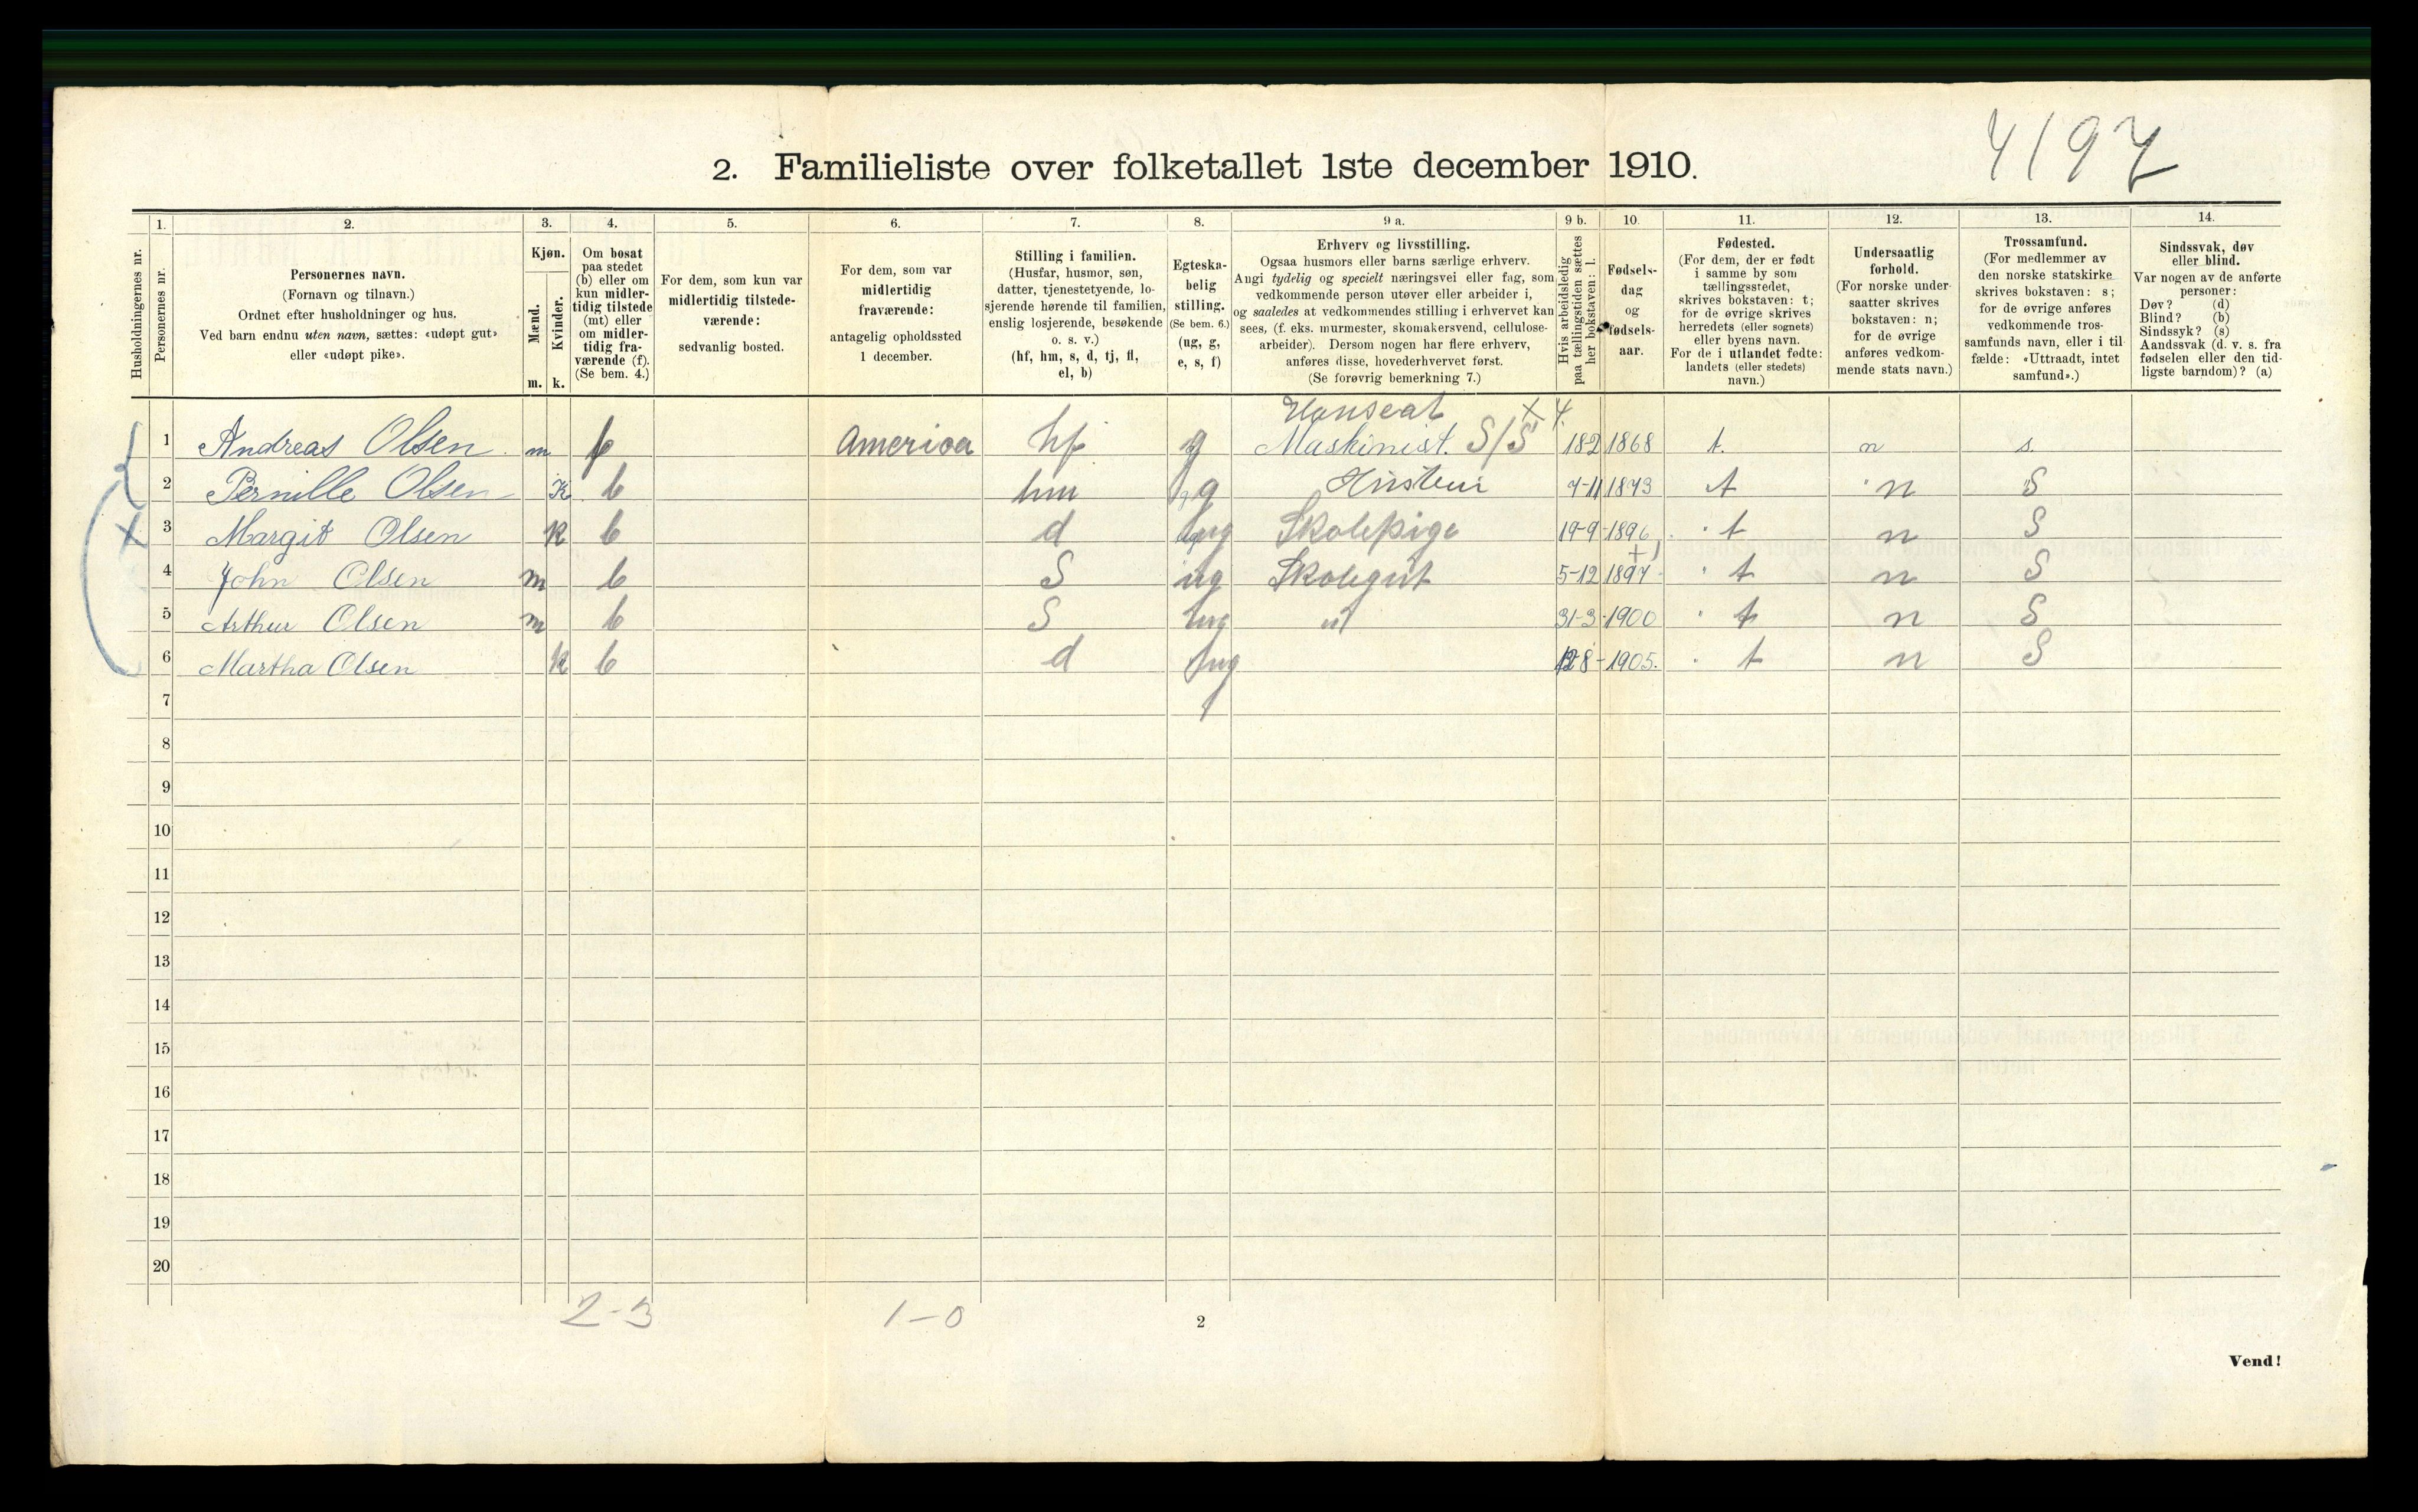 4197
2. Familieliste over folketallet 1ste december 1910.
Husholdningernes nr.
1. Personernes nr.
2. Personernes navn.
(Fornavn og tilnavn.)
Ordnet efter husholdninger og hus.
Ved barn endnu uten navn, sættes: «udøpt gut»
eller «udøpt pike».
3. Kjøn.
Mænd. m.
Kvinder. k.
4. Om bosat
paa stedet
(b) eller om
kun midler-
tidig tilstede
(mt) eller
om midler-
tidig fra-
værende (f).
(Se bem. 4.)
5. For dem, som kun var
midlertidig tilstede-
værende:
sedvanlig bosted.
6. For dem, som var
midlertidig
fraværende:
antagelig opholdssted
1 december.
7. Stilling i familien.
(Husfar, husmor, søn,
datter, tjenestetyende, lo-
sjerende hørende til familien,
enslig losjerende, besøkende
o. s. v.)
(hf, hm, s, d, tj, fl,
el, b)
8. Egteska-
belig
stilling.
(Se bem. 6.)
(ug, g,
e, s, f)
9 a. Erhverv og livsstilling.
Ogsaa husmors eller barns særlige erhverv.
Angi tydelig og specielt næringsvei eller fag, som
vedkommende person utøver eller arbeider i,
og saaledes at vedkommendes stilling i erhvervet kan
sees, (f. eks. murmester, skomakersvend, cellulose-
arbeider). Dersom nogen har flere erhverv,
anføres disse, hovederhvervet først.
(Se forøvrig bemerkning 7.)
9 b. Hvis arbeidsledig
paa tællingstiden sættes
her bokstaven: l.
10. Fødsels-
dag
og
fødsels-
aar.
11. Fødested.
(For dem, der er født
i samme by som
tællingsstedet,
skrives bokstaven: t;
for de øvrige skrives
herredets (eller sognets)
eller byens navn.
For de i utlandet fødte:
landets (eller stedets)
navn.)
12. Undersaatlig
forhold.
(For norske under-
saatter skrives
bokstaven: n;
for de øvrige
anføres vedkom-
mende stats navn.)
13. Trossamfund.
(For medlemmer av
den norske statskirke
skrives bokstaven: s;
for de øvrige anføres
vedkommende tros-
samfunds navn, eller i til
fælde: «Uttraadt, intet
samfund».)
14. Sindssvak, døv
eller blind.
Var nogen av de anførte
personer:
Døv? (d)
Blind? (b)
Sindssyk? (s)
Aandssvak (d. v. s. fra
fødselen eller den tid-
ligste barndom)? (a)
Hanseat X 4.
1 Andreas Olsen m f America hf g Maskinist S/S 18-2 1868 t. n s.
2 Pernille Olsen K b hm g Hustru 7-11 1873 t n S
3 Margit Olsen k b d ug Skolepige 19-9-1896 t n S
4 John Olsen m b S ug Skolegut 5-12 1897 t n S
5 Arthur Olsen m b S ug 31-3-1900 t n S
6 Martha Olsen k b d ug 8-1905. t n S
7
8
9
10
11
12
13
14
15
16
17
18
19
20
2-3 1-0
2
Vend!